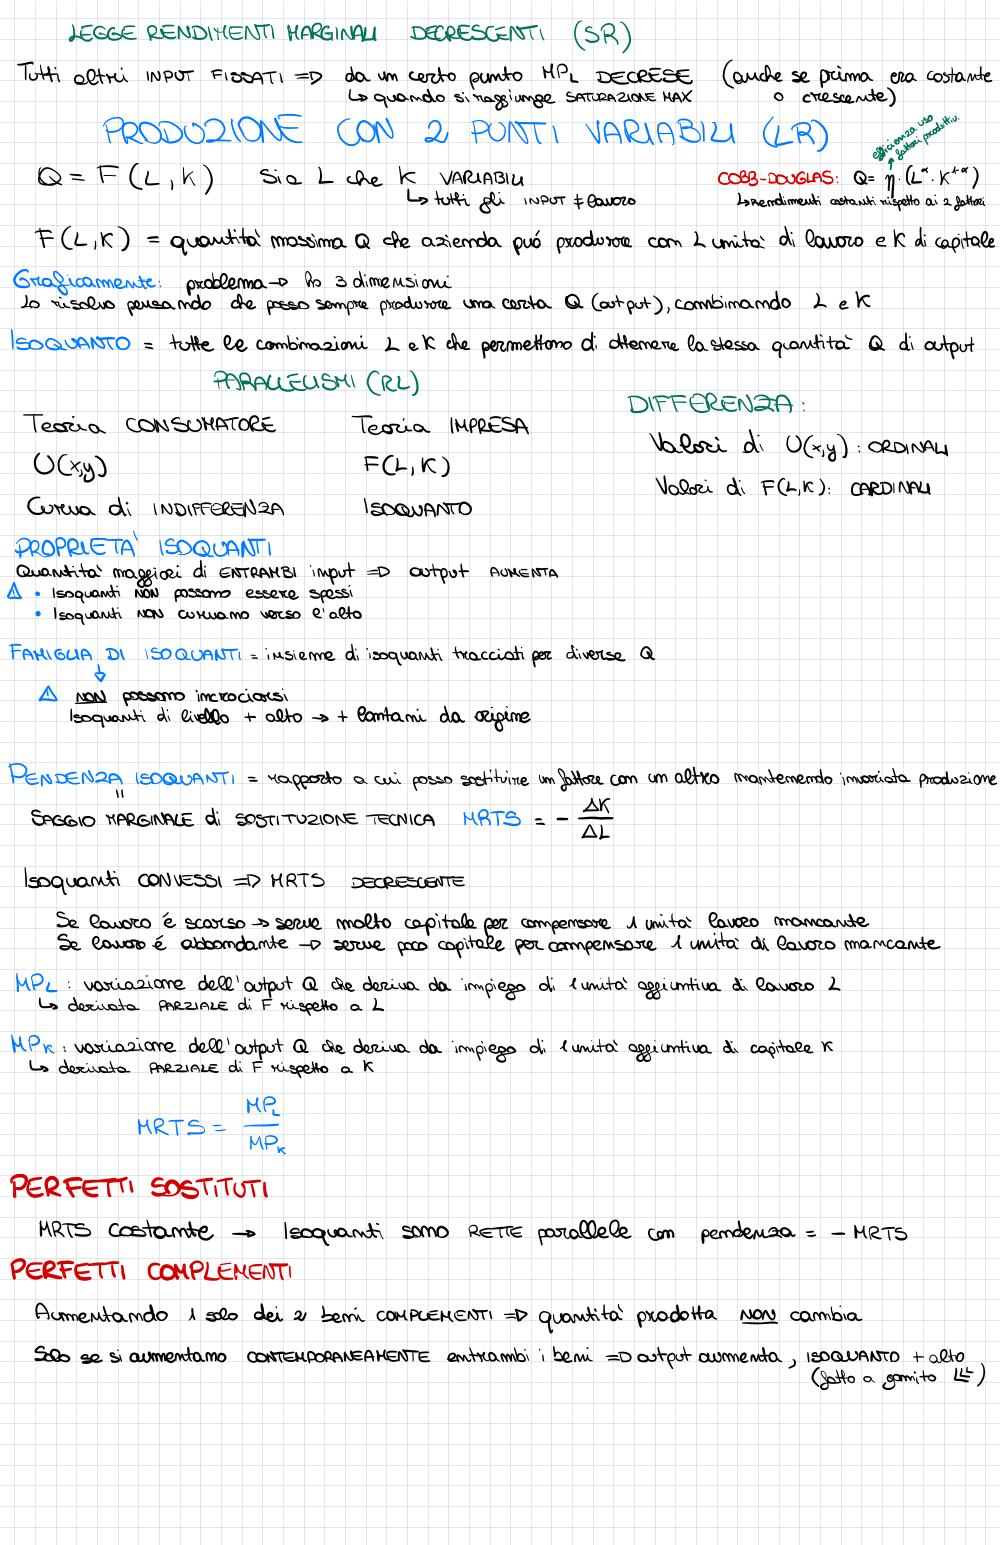 LEGGE RENDIMENTI MARGINALI DECRESCENTI (SR)
Tutti altri INPUT FISSATI => da un certo punto MPL DECRESE (anche se prima era costante
↳ quando si raggiunge SATURAZIONE MAX o crescente)
PRODUZIONE CON 2 PUNTI VARIABILI (LR)
efficienza uso
fattori produttivi
Q = F(L,K) Sia L che K VARIABILI
↳ tutti gli INPUT ≠ lavoro
COBB-DOUGLAS: Q = η·(L^α·K^1-α)
↳ Rendimenti costanti rispetto ai 2 fattori
F(L,K) = quantità massima Q che azienda può produrre con L unità di lavoro e K di capitale
Graficamente: problema → ho 3 dimensioni
Lo risolvo pensando che posso sempre produrre una certa Q (output), combinando L e K
ISOQUANTO = tutte le combinazioni L e K che permettono di ottenere la stessa quantità Q di output
PARALLELISMI (RL)
DIFFERENZA:
Teoria CONSUMATORE Teoria IMPRESA
Valori di U(x,y): ORDINALI
U(x,y) F(L,K)
Valori di F(L,K): CARDINALI
Curva di INDIFFERENZA ISOQUANTO
PROPRIETA' ISOQUANTI
Quantità maggiori di ENTRAMBI input => output AUMENTA
⚠ • Isoquanti NON possono essere spessi
• Isoquanti NON curvano verso l'alto
FAMIGLIA DI ISOQUANTI = insieme di isoquanti tracciati per diverse Q
↓
⚠ NON possono incrociarsi
Isoquanti di livello + alto → + lontani da origine
PENDENZA ISOQUANTI = rapporto a cui posso sostituire un fattore con un altro mantenendo invariata produzione
"
SAGGIO MARGINALE di SOSTITUZIONE TECNICA MRTS = - ΔK/ΔL
Isoquanti CONVESSI => MRTS DECRESCENTE
Se lavoro é scarso → serve molto capitale per compensare 1 unità lavoro mancante
Se lavoro é abbondante → serve poco capitale per compensare 1 unità di lavoro mancante
MPL : variazione dell'output Q che deriva da impiego di 1 unità aggiuntiva di lavoro L
↳ derivata PARZIALE di F rispetto a L
MPK : variazione dell'output Q che deriva da impiego di 1 unità aggiuntiva di capitale K
↳ derivata PARZIALE di F rispetto a K
MRTS = MPL/MPK
PERFETTI SOSTITUTI
MRTS costante → Isoquanti sono RETTE parallele con pendenza = - MRTS
PERFETTI COMPLEMENTI
Aumentando 1 solo dei 2 beni COMPLEMENTI => quantità prodotta NON cambia
Solo se si aumentano CONTEMPORANEAMENTE entrambi i beni => output aumenta, ISOQUANTO + alto
(fatto a gomito)